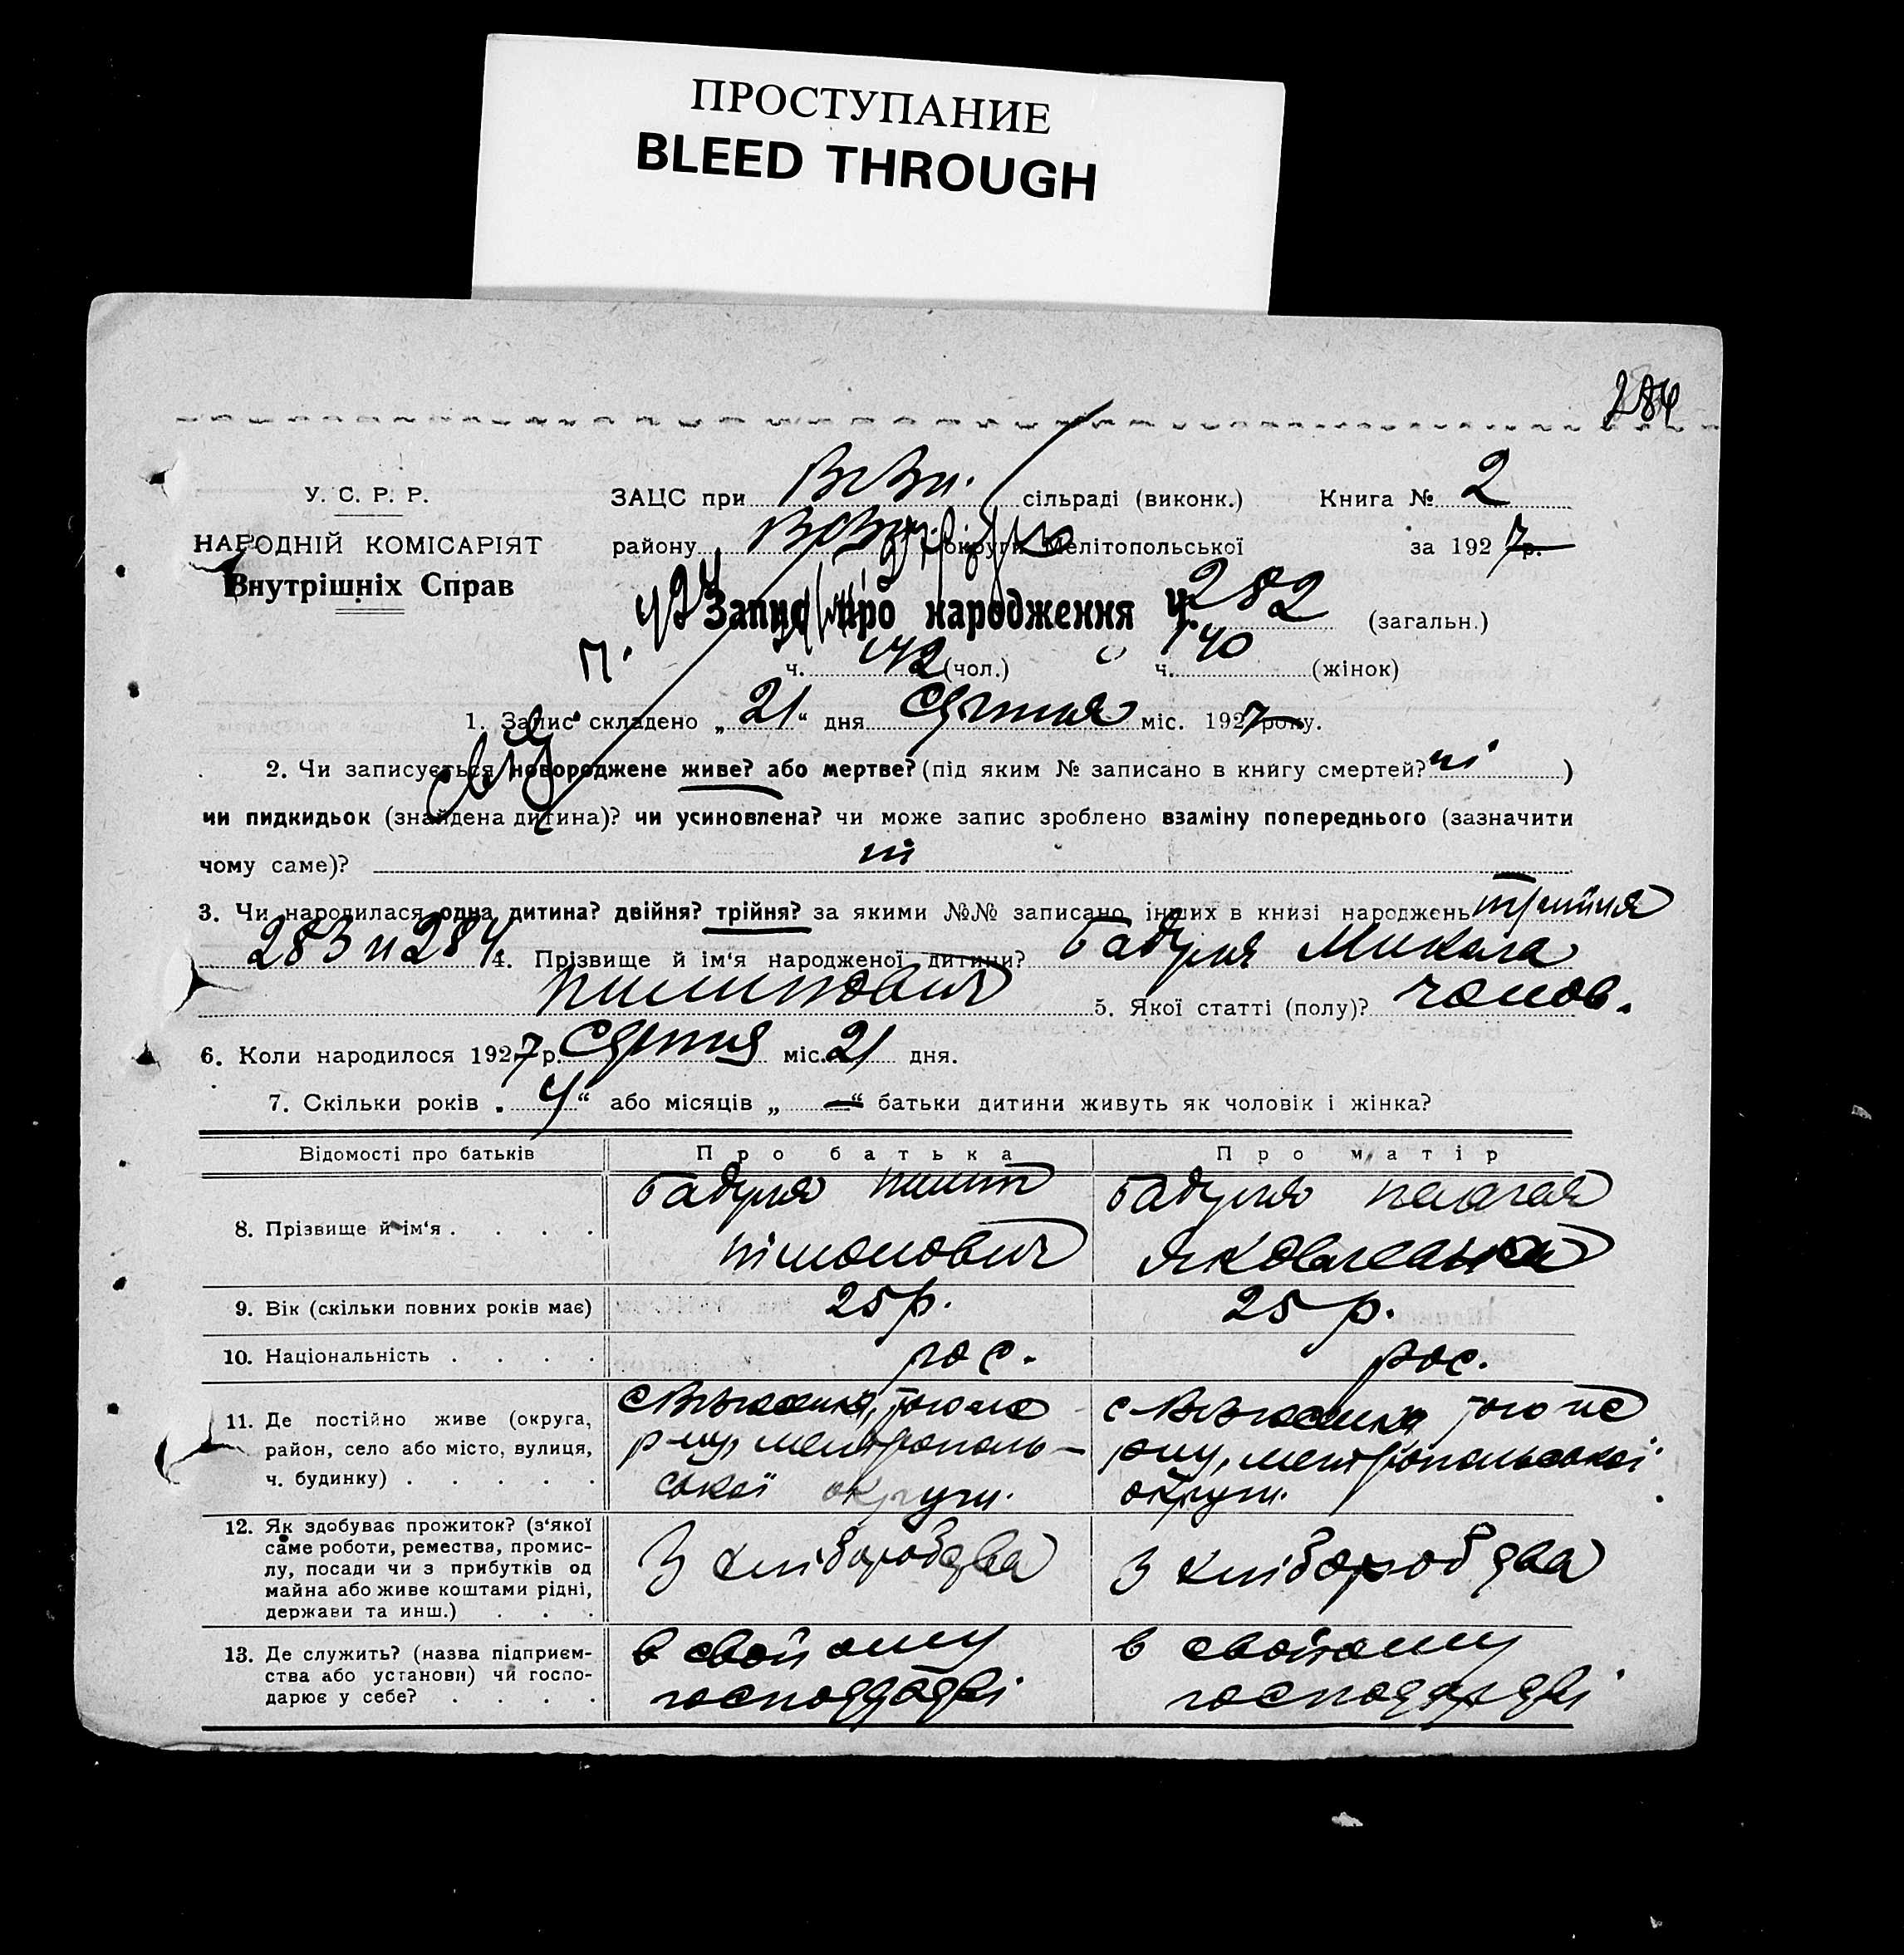 ПРОСТУПАНИЕ
BLEED THROUGH
284
У. С. Р. Р.
НАРОДНІЙ КОМІСАРІЯТ
Внутрішніх Справ
ЗАЦС при сільраді (виконк.) Книга № 2
району округи Мелітопольської за 1927 р.
Запис про народження Ч. 282 (загальн.)
ч. 142 (чол.) ч. 140 (жінок)
1. Запис складено „21“ дня Серпня міс. 1927 року.
2. Чи записується новороджене живе? або мертве? (під яким № записано в книгу смертей? ні )
чи пидкидьок (знайдена дитина)? чи усиновлена? чи може запис зроблено взаміну попереднього (зазначити
чому саме)? ні
3. Чи народилася одна дитина? двійня? трійня? за якими №№ записано інших в книзі народжень трийня
283 и 284. 4. Прізвище й ім‘я народженої дитини? Бадуля Микола
Пилипович 5. Якої статті (полу)? чолов.
6. Коли народилося 1927 р. Серпня міс. 21 дня.
7. Скільки років „4“ або місяців „—“ батьки дитини живуть як чоловік і жінка?
Відомості про батьків Про батька Про матір
8. Прізвище й ім‘я . . . . Бадуля Пилип Бадуля Палагея
Яковлевна
9. Вік (скільки повних років має) 25 р. 25 р.
10. Національність . . . . рос. рос.
11. Де постійно живе (округа, район, село або місто, вулиця, ч. будинку) . . . . .
р-ну, Мелітополь-
ської округи.
р-ну, Мелітопольської
округи.
12. Як здобуває прожиток? (з‘якої саме роботи, ремества, промислу, посади чи з прибутків од майна або живе коштами рідні, держави та инш.) . . .
З хліборобства З хліборобства
13. Де служить? (назва підприємства або установи) чи господарює у себе? . . . .
в свойому в свойому
господарстві господарстві